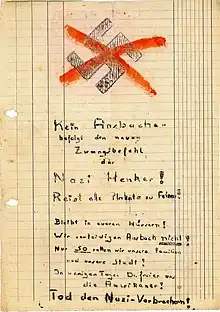 Kein Ansbacher
befolgt den neuen
Zwangsbefehl
der
Nazi Henker!
Reist alle Plakate zu Fetzen!
Bleibt in eueren Häusern!
Wir verteidigen Ansbach nicht!
Nur so retten wir unsere Familien
und unsere Stadt!
In wenigen Tagen
die Amerikaner!
Tod den Nazi-Verbrechern!